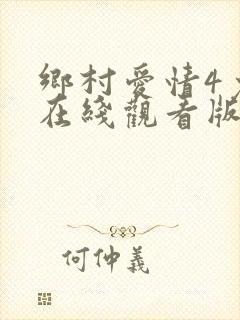 鄉村愛情4
在綫觀看版
何仲義